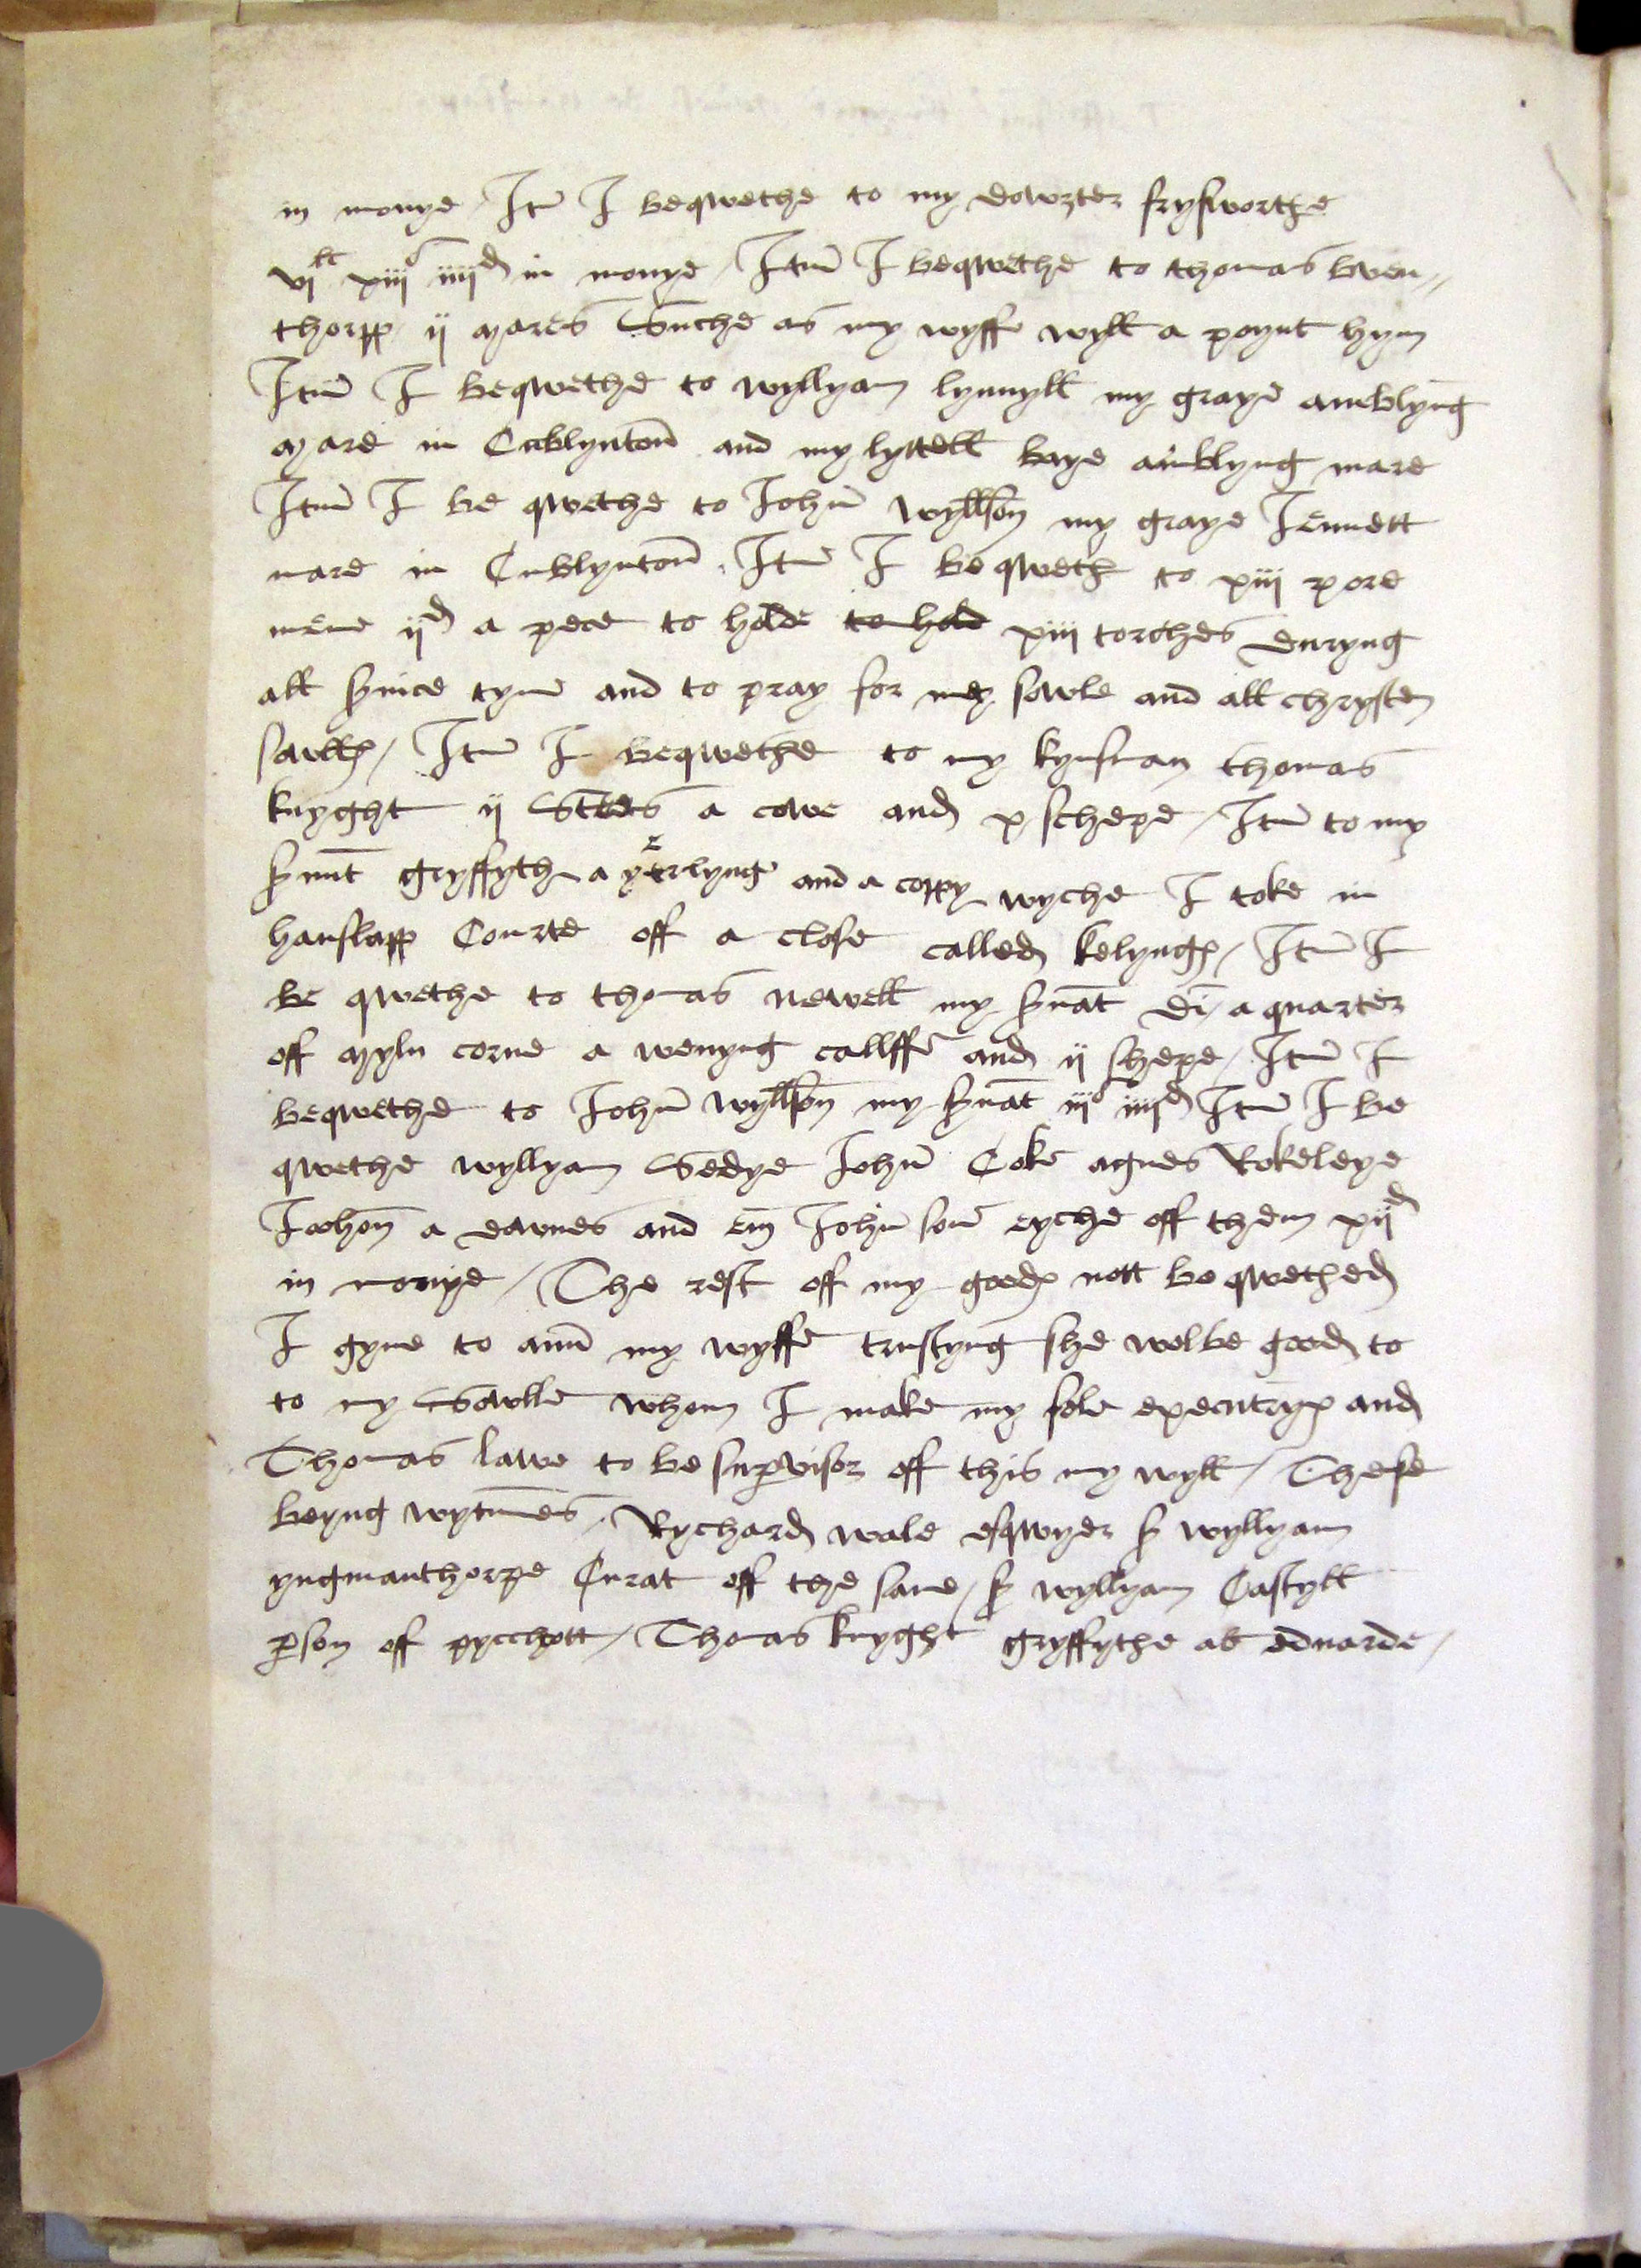 in monye Itm I beqwethe to my dowzter frysworthe
vi li xiij s iiij d in monye / Itm I beqwethe to thomas bwen„
thorpp ij mares Suche as my wyffe wyll a poynt hym
Itm I beqwethe to wyllyam lynnyll my graye amblyng
mare in Cublynton and my lyttell baye amblyng mare
Itm I be qwethe to John wyllson my graye Jennett
mare in Cublynton . Itm I be qweth to xiij pore
mene ij d a pece to holde to hold xiij torches duryng
all svice tyme and to pray for my sowle and all chrysten
sowlls / Itm I beqwethe to my kynsman thomas
knyght ij Steds a cowe and x schepe / Itm to my
svnt gryffyth a yerlyng and a coppy wyche I toke in
hanslapp Courte off a close called kelyngs / Itm I
be qwethe to thomas newell my svnat di a quarter
off myln corne a wenyng callffe and ij shepe / Itm I
beqwethe to John wyllson my svnat iij s iiij d Itm I be
qwethe wyllyam Sedye John Coke agnes Rokeleye
Jhon a downes and em John sone eyche off them xij d
in monye / The rest off my goods nott be qwethed
I gyve to ann my wyffe trustyng she wolbe good to
to my Sowlle whom I make my sole executryx and
Thomas lawe to be supvisor off this my wyll / These
beyng wytnnes . Rychard wale esqwyer Sr wyllyam
yngmanthorpe Curat off the same / Sr wyllyam Castyll
pson off pycchott / Thomas knyght gryffythe ab eduarde /